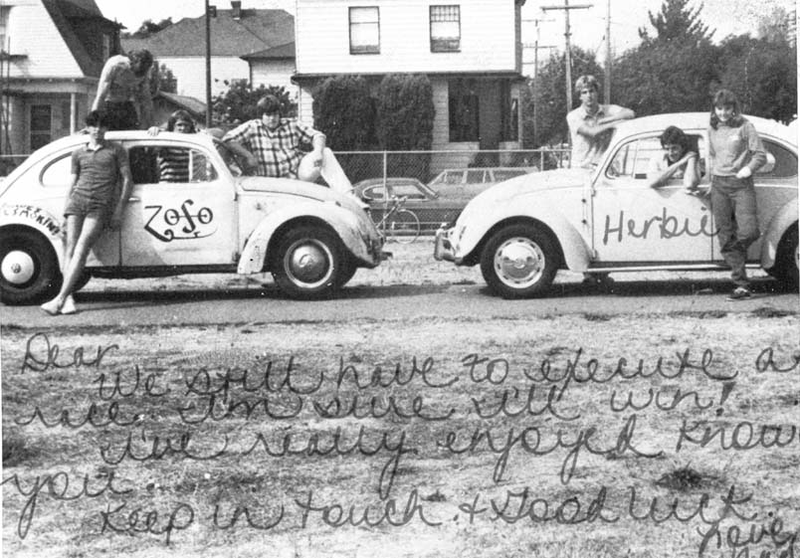 Zofo
Herbie
Dear
We still have to execute a
race. I'm sure I'll win!
I've really enjoyed know
you.
Keep in touch. & Good luck.
Love,